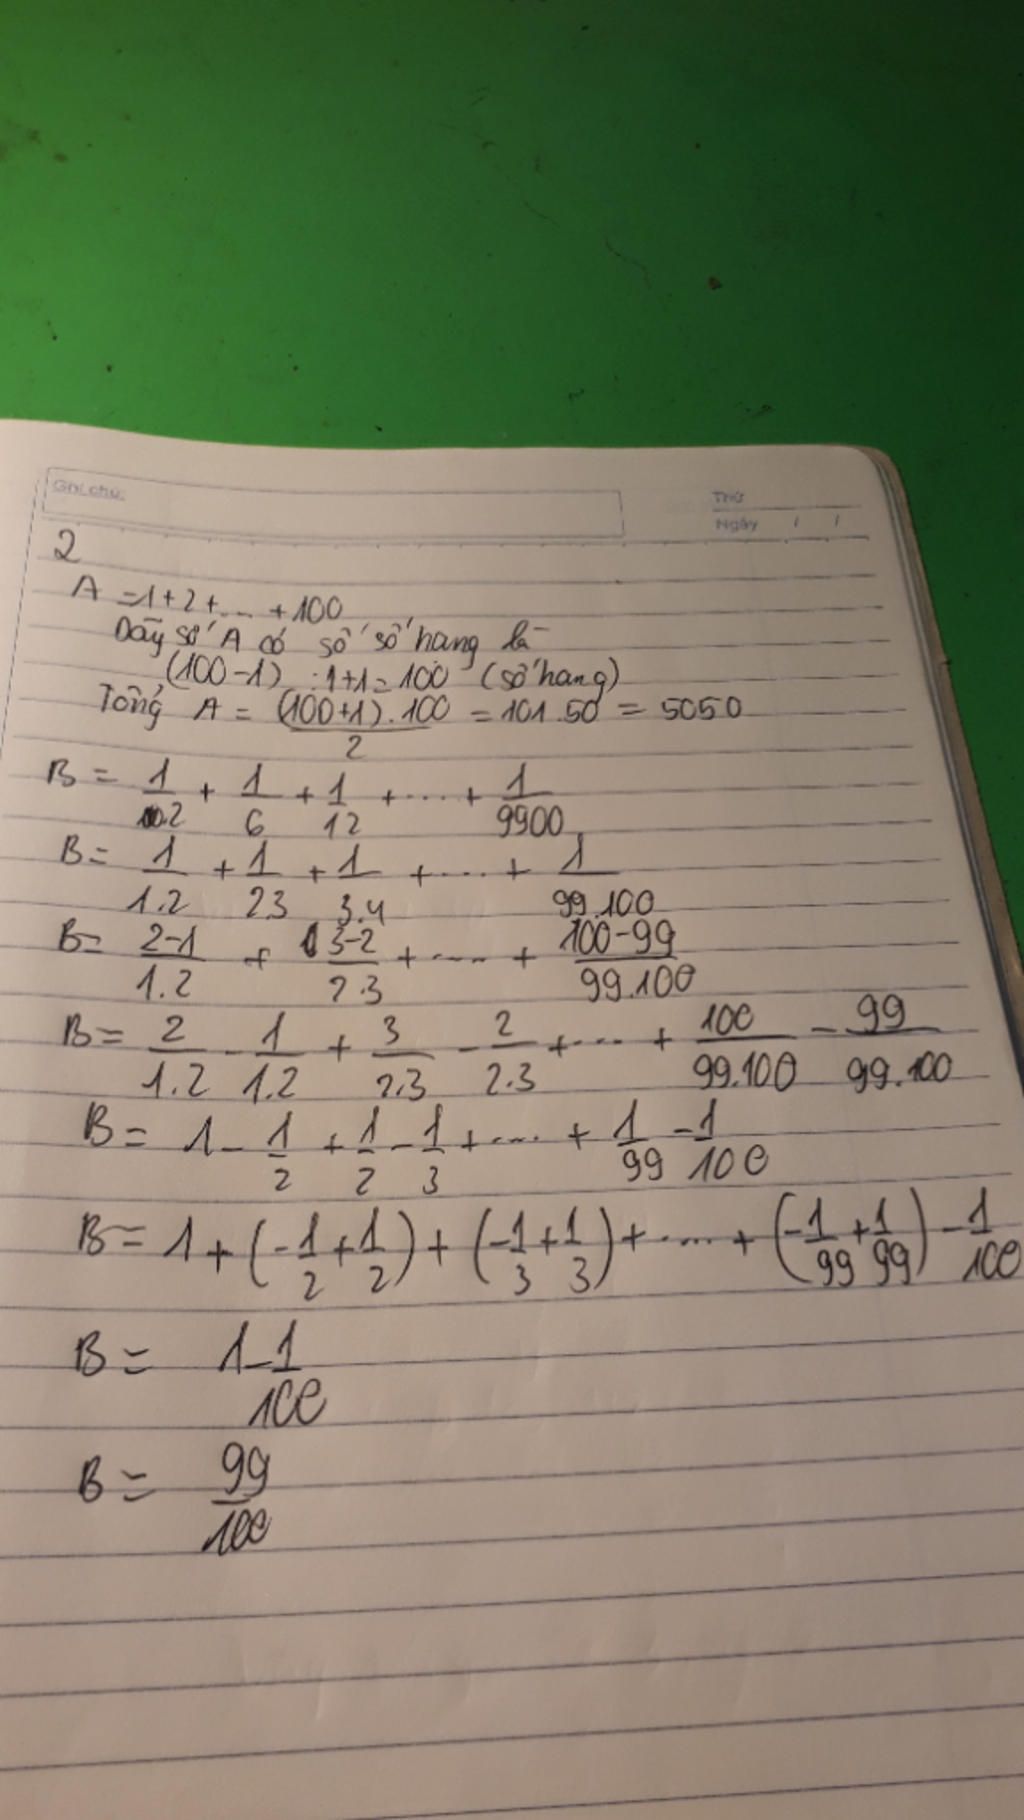 Ghi chú:
Thứ
Ngày / /
2
A = 1 + 2 + ... + 100
Dãy số A có số số hang là
(100-1) : 1+1 = 100 (số hang)
Tổng A = (100+1).100/2 = 101.50 = 5050
B = 1/2 + 1/6 + 1/12 + .... + 1/9900
B = 1/1.2 + 1/2.3 + 1/3.4 + .... + 1/99.100
B = 2-1/1.2 + 3-2/2.3 + .... + 100-99/99.100
B = 2/1.2 - 1/1.2 + 3/2.3 - 2/2.3 + .... + 100/99.100 - 99/99.100
B = 1 - 1/2 + 1/2 - 1/3 + .... + 1/99 - 1/100
B = 1 + (-1/2 + 1/2) + (-1/3 + 1/3) + .... + (-1/99 + 1/99) - 1/100
B = 1 - 1/100
B = 99/100